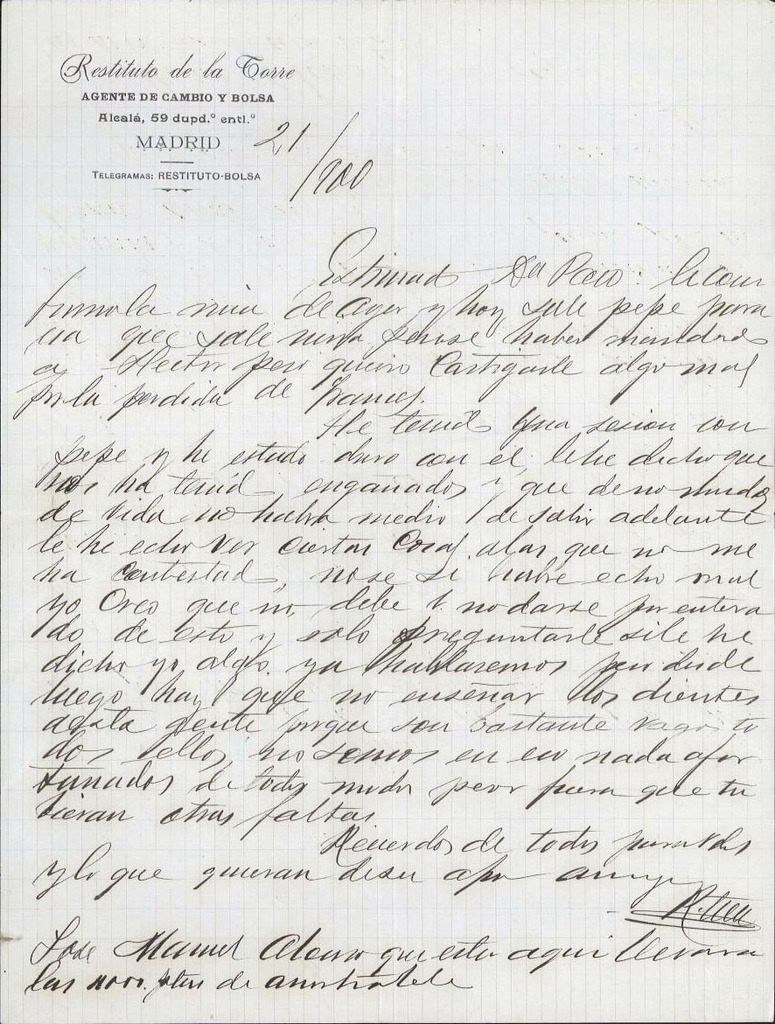 Restituto de la Torre
AGENTE DE CAMBIO Y BOLSA
Alcalá, 59 dupd.º entl.º
MADRID 21/900
TELEGRAMAS: RESTITUTO-BOLSA
Estimado Dn Paco:
mia de ayer y hoy sale pepe para
que sale pense haber mandado
a Hector pero quiero Castigarle algo mas
por la perdida de
He tenido una sesion con
pepe y he estado duro con el le he dicho que
nos ha tenido engañados y que de no mudar
de vida no habra medio de salir adelante
le he echo ver ciertas cosas a las que no me
ha contestado, no se si habre echo mal
yo Creo que no, debe V. no darse por entera
do de esto y solo preguntarle si le he
dicho yo algo. ya hablaremos pero desde
luego hay que no enseñar los dientes
a esta gente porque son bastante vagos to
dos ellos, no semos en eso nada afor
tunados de todos modos peor fuera que tu
bieran otras faltas
Recuerdos de todos para Vds
y lo que quieran de su afmo amigo
R.
Jose Manuel que esta aqui llevara
las ptas de